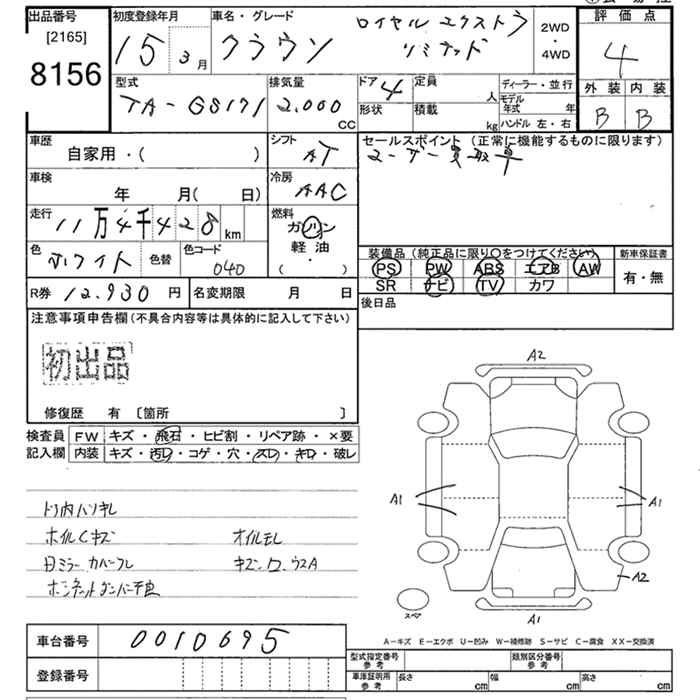 出品番号
[2165]
8156
初度登録年月
15 3月
車名・グレード
クラウン
ロイヤル エクストラ
リミテッド
2WD
・
4WD
評価点
4
型式
TA-GS171
排気量
2,000
CC
ドア 4
形状
定員
人
積載
kg
ディーラー・並行
モデル
年式 年
ハンドル 左・右
外装 内装
B B
車歴
自家用・( )
シフト
AT
セールスポイント (正常に機能するものに限ります)
ユーザー買取車
車検
年 月( 日)
冷房
AAC
走行
11万4千428km
燃料
ガソリン
軽油
( ・ )
色
ホワイト
色替
色コード
040
装備品 (純正品に限り〇をつけてください)
新車保証書
PS PW ABS エアB AW
有・無
SR ナビ TV カワ
R券 12,930 円
名変期限 月 日
後日品
注意事項申告欄 (不具合内容等は具体的に記入して下さい)
初出品
修復歴 有 〔箇所 〕
検査員
記入欄
FW キズ・飛石・ヒビ割・リペア跡・×要
内装 キズ・汚レ・コゲ・穴・スレ・キレ・破レ
A2
A1
A1
A2
スペア
A1
ホイルCキズ
オイルモレ
A-キズ E-エクボ U-凹み W-補修跡 S-サビ C-腐食 XX-交換済
車台番号
0010695
登録番号
型式指定番号
参考
類別区分番号
参考
車庫証明用
参考
長さ cm
幅 cm
高さ cm